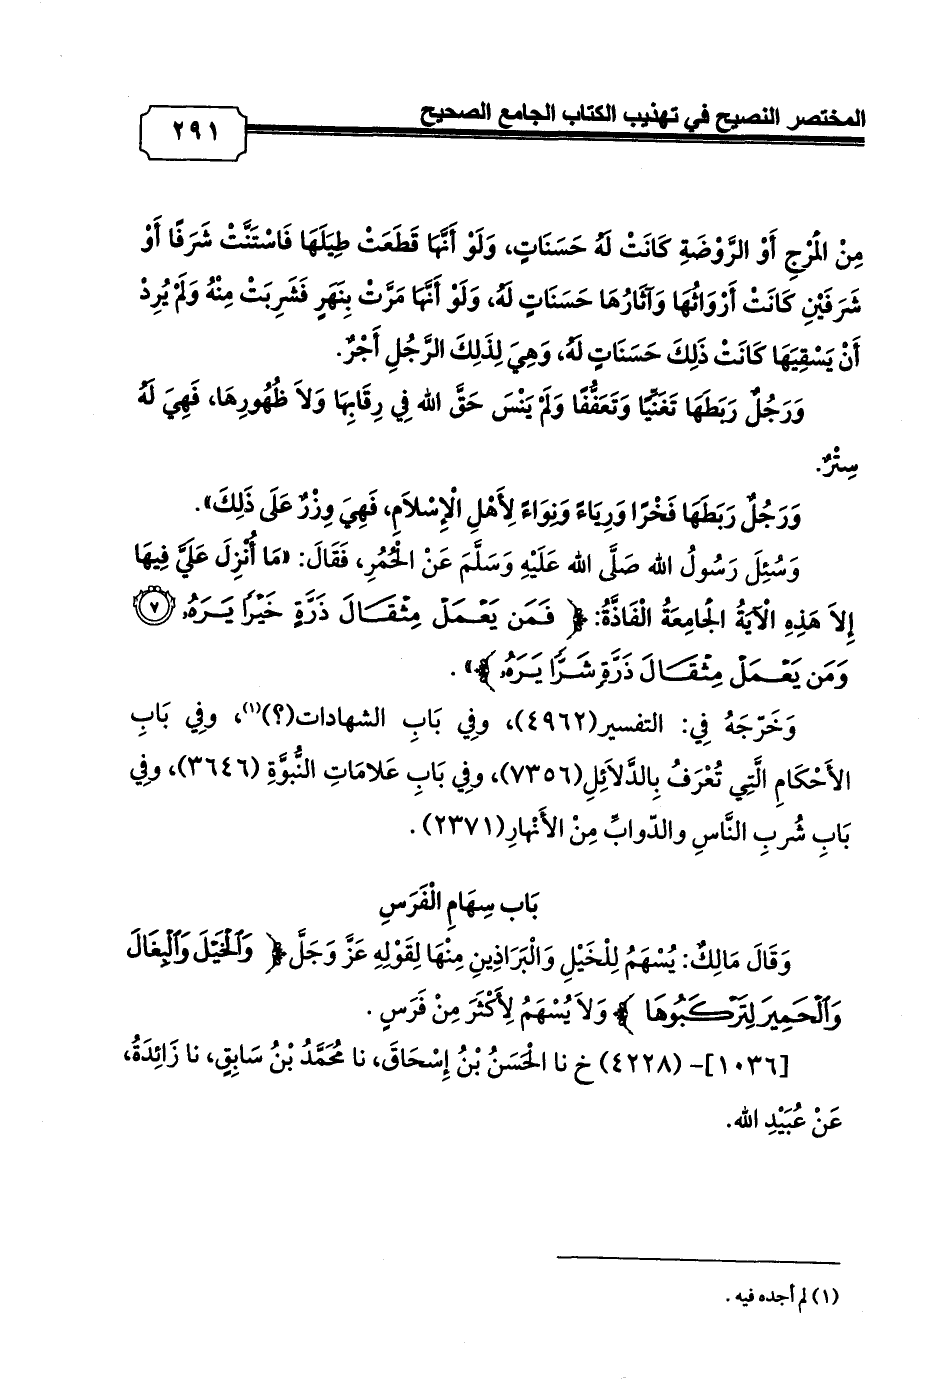 المختصر النصيح في تهذيب الكتاب الجامع الصحيح
٢٩١
مِنْ المَرْجِ أَوْ الرَّوْضَةِ كَانَتْ لَهُ حَسَنَاتٍ، وَلَوْ أَنَّهَا قَطَعَتْ طِيَلَهَا فَاسْتَنَّتْ شَرَفًا أَوْ
شَرَفَيْنِ كَانَتْ أَرْوَاثُهَا وَآثَارُهَا حَسَنَاتٍ لَهُ، وَلَوْ أَنَّهَا مَرَّتْ بِنَهَرٍ فَشَرِبَتْ مِنْهُ وَلَمْ يُرِدْ
أَنْ يَسْقِيَهَا كَانَتْ ذَلِكَ حَسَنَاتٍ لَهُ، وَهِيَ لِذَلِكَ الرَّجُلِ أَجْرٌ.
وَرَجُلٌ رَبَطَهَا تَغَنِّيًا وَتَعَفُّفًا وَلَمْ يَنْسَ حَقَّ الله فِي رِقَابِهَا وَلاَ ظُهُورِهَا، فَهِيَ لَهُ
سِتْرٌ.
وَرَجُلٌ رَبَطَهَا فَخْرًا وَرِيَاءً وَنِوَاءً لِأَهْلِ الْإِسْلاَمِ، فَهِيَ وِزْرٌ عَلَى ذَلِكَ».
وَسُئِلَ رَسُولُ الله صَلَّى الله عَلَيْهِ وَسَلَّمَ عَنْ الْحُمُرِ، فَقَالَ: «مَا أُنْزِلَ عَلَيَّ فِيهَا
إِلاَ هَذِهِ الْآيَةُ الْجَامِعَةُ الْفَاذَّةُ: ﴿ فَمَن يَعْمَلْ مِثْقَالَ ذَرَّةٍ خَيْرًا يَرَهُۥ ٧
وَمَن يَعْمَلْ مِثْقَالَ ذَرَّةٍ شَرًّا يَرَهُۥ ﴾» .
وَخَرّجَهُ فِي: التفسير(٤٩٦٢)، وفِي بَابِ الشهادات(؟)(١)، وفِي بَابِ
الأَحْكَامِ الَّتِي تُعْرَفُ بِالدَّلاَئِلِ(٧٣٥٦)، وفِي بَابِ عَلامَاتِ النُّبوَّةِ (٣٦٤٦)، وفِي
بَابِ شُربِ النَّاسِ والدّوابِّ مِنْ الأَنْهارِ(٢٣٧١).
بَاب سِهَامِ الْفَرَسِ
وَقَالَ مَالِكٌ: يُسْهَمُ لِلْخَيْلِ وَالْبَرَاذِينِ مِنْهَا لِقَوْلِهِ عَزَّ وَجَلَّ ﴿ وَالْخَيْلَ وَالْبِغَالَ
وَالْحَمِيرَ لِتَرْكَبُوهَا ﴾ وَلاَ يُسْهَمُ لِأَكْثَرَ مِنْ فَرَسٍ .
[١٠٣٦]- (٤٢٢٨) خ نا الْحَسَنُ بْنُ إِسْحَاقَ، نا مُحَمَّدُ بْنُ سَابِقٍ، نا زَائِدَةُ،
عَنْ عُبَيْدِ الله.
(١) لم أجده فيه .